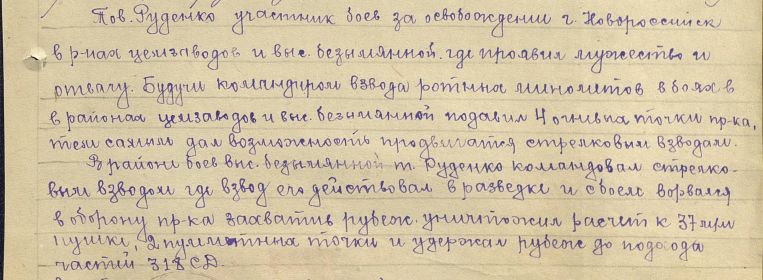 Тов. Руденко участник боев за освобождении г. Новороссийск
в р-нах цемзаводов и выс. безымянной. где проявил мужество и
отвагу. Будучи командиром взвода ротных минометов в боях в
в районах цемзаводов и выс. безымянной подавил 4 огневых точки пр-ка,
тем самым дал возможность продвигатся стрелковым взводам.
В районе боев выс. безымянной т. Руденко командовал стрелко-
вым взводом где взвод его действовал в разведке и с боем ворвался
в оборону пр-ка захватив рубеж. уничтожил расчет к 37 м/м
пушке, 2 пулеметных точки и удержал рубеж до подхода
частей 318 СД.